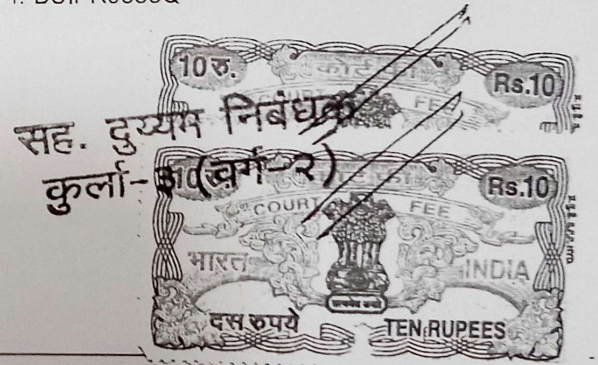 10 रु. कोर्ट फी Rs.10
COURT FEE
सह. दुय्यम निबंधक
कुर्ला-३ (वर्ग-२)
Rs.10
COURT FEE
भारत INDIA
सत्यमेव जयते
दस रुपये TEN RUPEES